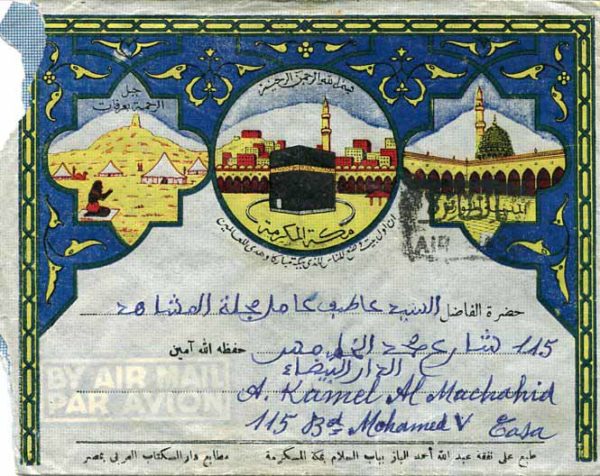 جبل
الرحمة بعرفات
بسم الله الرحمن الرحيم
مكة المكرمة
ان اول بيت وضع للناس للذي ببكة مباركا وهدى للعالمين
AIR
حضرة الفاضل السيد عاطف كامل مجلة المشاهد
115 شارع محمد الخامس حفظه الله آمين
الدار البيضاء
BY AIR MAIL
PAR AVION
A. Kamel Al Machahid
115 Bd Mohamed V Casa
طبع على نفقة عبد الله أحمد الباز بباب السلام بمكة المكرمة مطابع دار الكتاب العربي بمصر